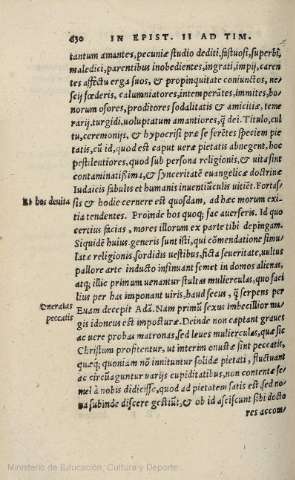 630 IN EPIST. II AD TIM.
tantum amantes, pecuniæ studio dediti, fastuosi, superbi,
maledici, parentibus inobedientes, ingrati, impij, caren
tes affectu erga suos, & propinquitate coniunctos, ne
scij fœderis, calumniatores, intemperātes, immites, bo
norum osores, proditores sodalitatis & amicitiæ, teme
rarij, turgidi, uoluptatum amantiores, q̃ dei. Titulo, cul
tu, ceremonijs, & hypocrisi præ se ferētes speciem pie
tatis, cū id, quod est caput ueræ pietatis abnegent, hoc
pestilentiores, quod sub persona religionis, & uita sint
contaminatissima, & synceritatē euangelicæ doctrinæ
Iudaicis fabulis et humanis inuentiūculis uitiēt. Fortas
Et hos deuita
sis & hodie cernere est quosdam, ad hæc morum exi-
tia tendentes. Proinde hos quoq; fac auerseris. Id quo
certius facias, mores illorum ex parte tibi depingam.
Siquidē huius generis sunt isti, qui cōmendatione simu
latæ religionis, sordidis uestibus, ficta seueritate, uultus
pallore arte inducto insinuant semet in domos alienas,
atq; illic primum uenantur stultas mulierculas, quo faci
lius per has imponant uiris, haud secus, q̃ serpens per
Euam decepit Adā. Nam primū sexus imbecillior ma-
Oneratas peccatis
gis idoneus est imposturæ. Deinde non captant graues
ac uere probas matronas, sed leues mulierculas, quæ sic
Christum profitentur, ut interim onustæ sint peccatis,
quæq; quoniam nō innituntur solidæ pietati, fluctuant
ac circūaguntur varijs cupiditatibus, non contentæ se-
mel à nobis didicisse, quod ad pietatem satis est, sed no-
ua subinde discere gestiūt, & ob id asciscunt sibi docto
res accom/
Ministerio de Educación, Cultura y Deporte